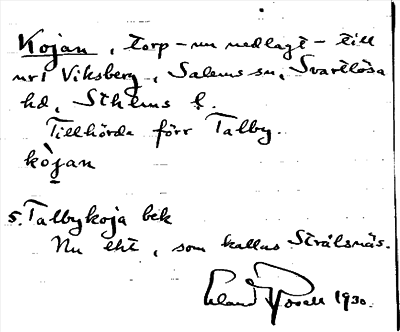 Kojan, torp – nu nedlagt – till
nr1 Viksberg, Salems sn, Svartlösa
hd, Sthlms l.
Tillhörde förr Talby.
kòjan
s. Talbykoja bek
Nu lht, som kallas Strålsnäs.
Erland Rosell 1930.